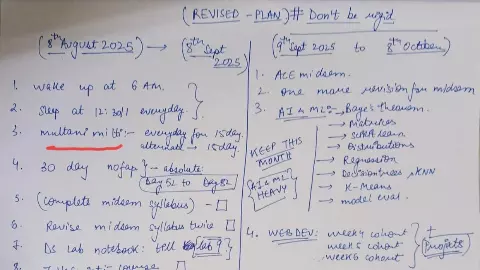 (REVISED - PLAN) # Don't be rigid
(8th August 2025) → (8th Sept 2025)
1. Wake up at 6 AM.
2. Sleep at 12:30/1 everyday.
3. multani mitti:- everyday for 15 day.
alternate → 15 day.
4. 30 day nofap → absolute.
(Day 52 to Day 82
5. (Complete midsem syllabus) -
6. Revise midsem syllabus twice
7. DS Lab notebook: till lab 9
8.
(9th Sept 2025 to 8th October)
1. ACE midsem.
2. One more revision for midsem
3. AI & ML:- → Baye's theorem.
→ Matrices
→ Scikit learn
→ Distributions
→ Regression
→ Decision trees, KNN
→ K-Means
→ model eval.
KEEP THIS MONTH
AI & ML HEAVY
4. WEB DEV: week 4 cohort
week 5 cohort
week 6 cohort
+
Projects